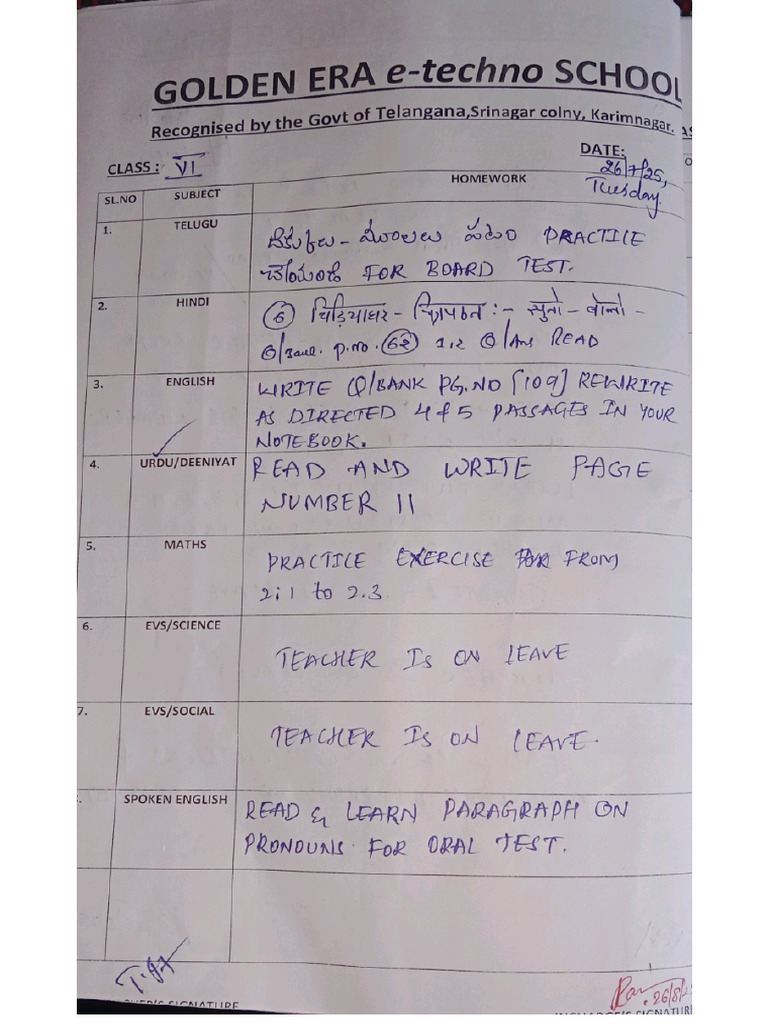 GOLDEN ERA e-techno SCHOOL
Recognised by the Govt of Telangana,Srinagar colny, Karimnagar.
CLASS : VI
DATE:
26/7/25,
Tuesday
SL.NO SUBJECT HOMEWORK
1. TELUGU
పదం PRACTICE
చేయండి FOR BOARD TEST.
2. HINDI
6 चिड़ियाघर - :- सुनो - बोलो -
p.no. 62 1,2 Q/Ans READ
3. ENGLISH
WRITE Q/BANK PG.NO [109] REWRITE
AS DIRECTED 4 & 5 PASSAGES IN YOUR
NOTEBOOK.
4. URDU/DEENIYAT
READ AND WRITE PAGE
NUMBER 11
5. MATHS
PRACTICE EXERCISE FROM
2:1 to 2.3
6. EVS/SCIENCE
TEACHER IS ON LEAVE
7. EVS/SOCIAL
TEACHER IS ON LEAVE.
SPOKEN ENGLISH
READ & LEARN PARAGRAPH ON
PRONOUNS FOR ORAL TEST.
26/8/
SIGNATURE